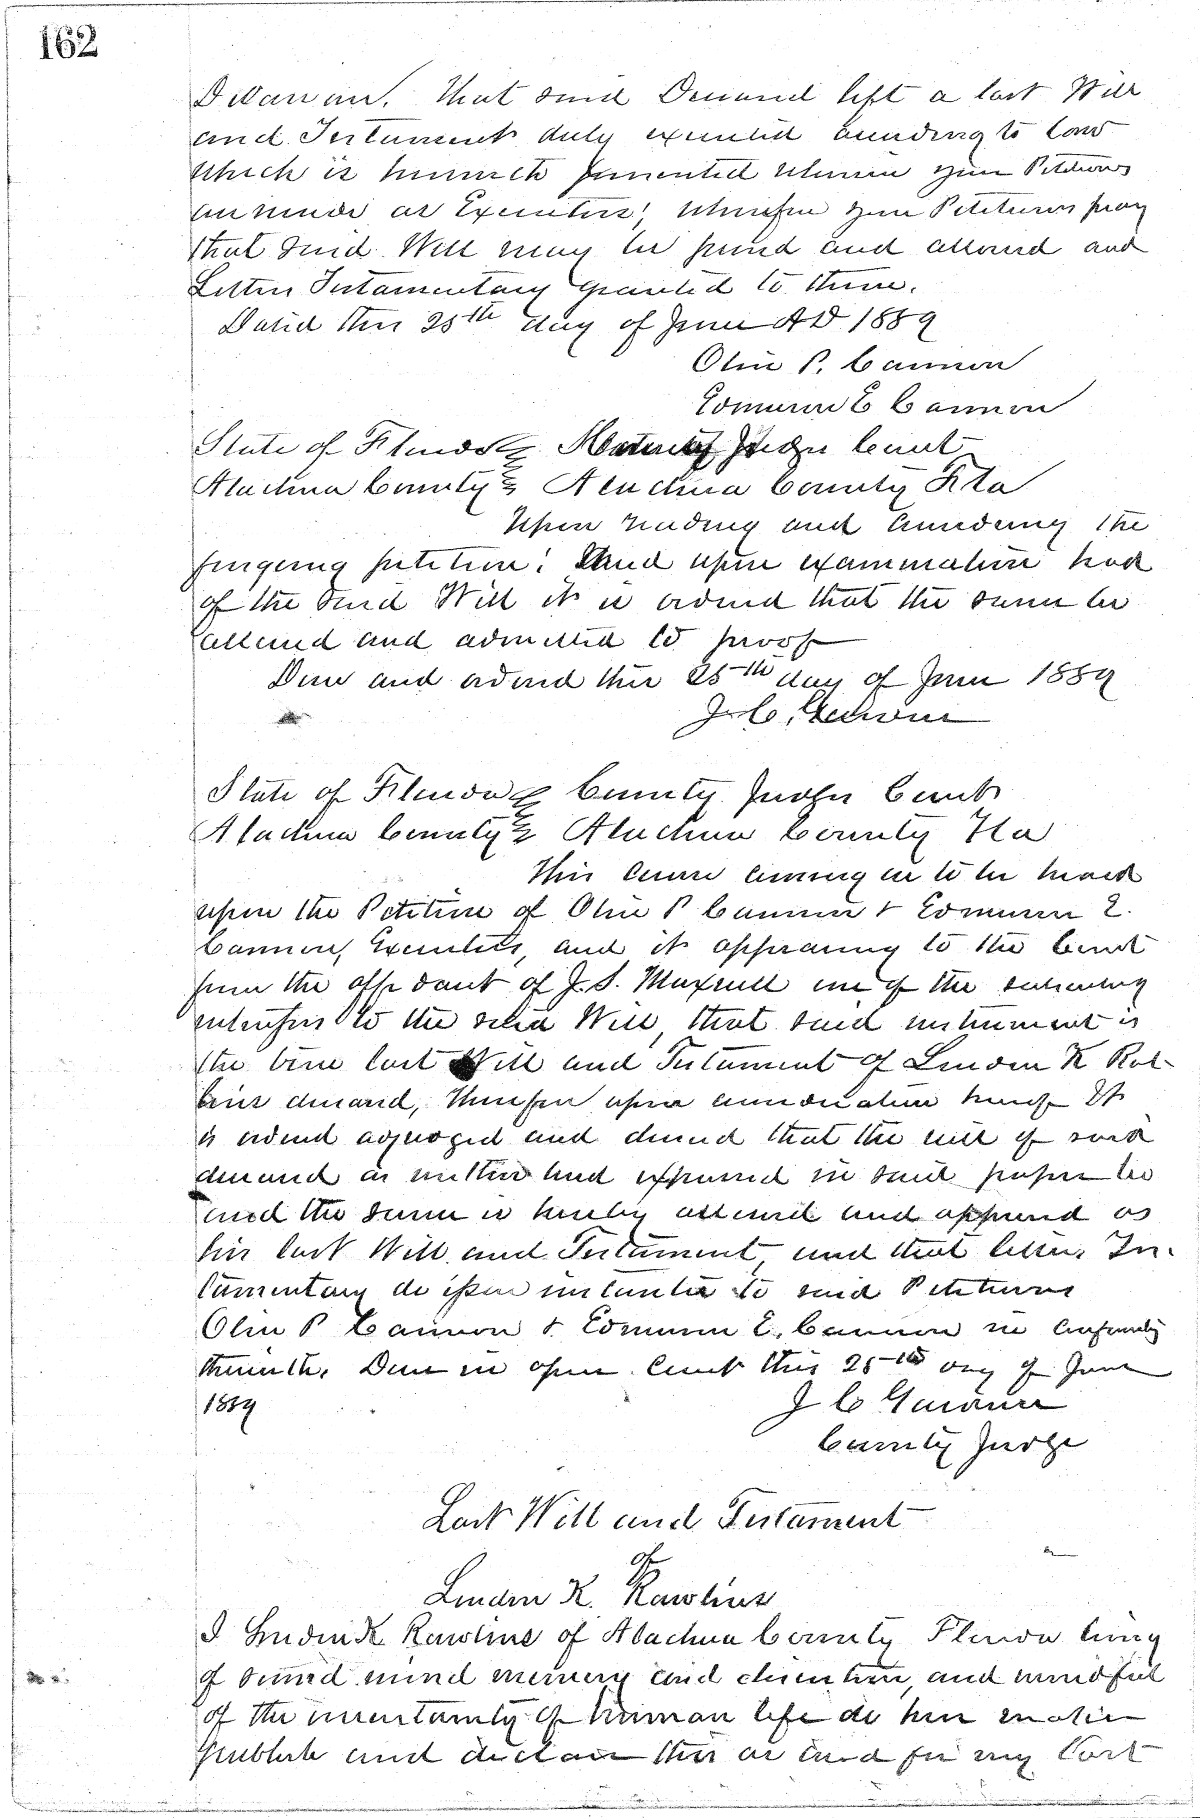 162
That said Deceased left a last Will
and Testament duly executed according to law
which is herewith presented wherein your Petitioners
are made as Executors, wherefore your Petitioners pray
that said Will may be proved and allowed and
Letters Testamentary granted to them.
Dated this 25th day of June AD 1889
Olin P. Cannon
Edmund E Cannon
State of Florida Judges Court
Alachua County Alachua County Fla
Upon reading and considering the
foregoing petition, And upon examination had
of the said Will it is ordered that the same be
allowed and admitted to proof
Done and ordered this 25th day of June 1889
J. C. Gardner
State of Florida County Judges Court
Alachua County Alachua County Fla
This Cause coming on to be heard
upon the Petition of Olin P Cannon & Edmund E.
Cannon, Executors, and it appearing to the Court
from the affidavit of J. S. Maxwell one of the subscribing
witnesses to the said Will, that said instrument is
the true last Will and Testament of Lindon K Rol-
lins deceased, Therefore upon consideration hereof It
is ordered adjudged and decreed that the will of said
deceased as written and expressed in said paper be
and the same is hereby allowed and approved as
his last Will and Testament, and that letters Tes-
tamentary do issue instanter to said Petitioners
Olin P Cannon & Edmund E. Cannon in conformity
therewith. Done in open Court this 25th day of June
1889 J C Gardner
County Judge
Last Will and Testament
of
Lindon K. Rawlins
I Lindon K Rawlins of Alachua County Florida being
of sound mind memory and discretion, and mindful
of the uncertainty of human life do here make
publish and declare this as and for my last